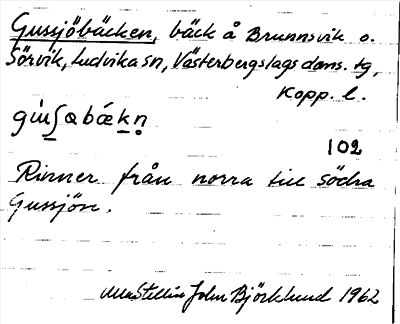 Gussjöbäcken, bäck å Brunnsvik o.
Sörvik, Ludvika sn, Västerbergslags doms. tg,
Kopp. l.
102
Rinner från norra till södra
Gussjön.
John Björklund 1962